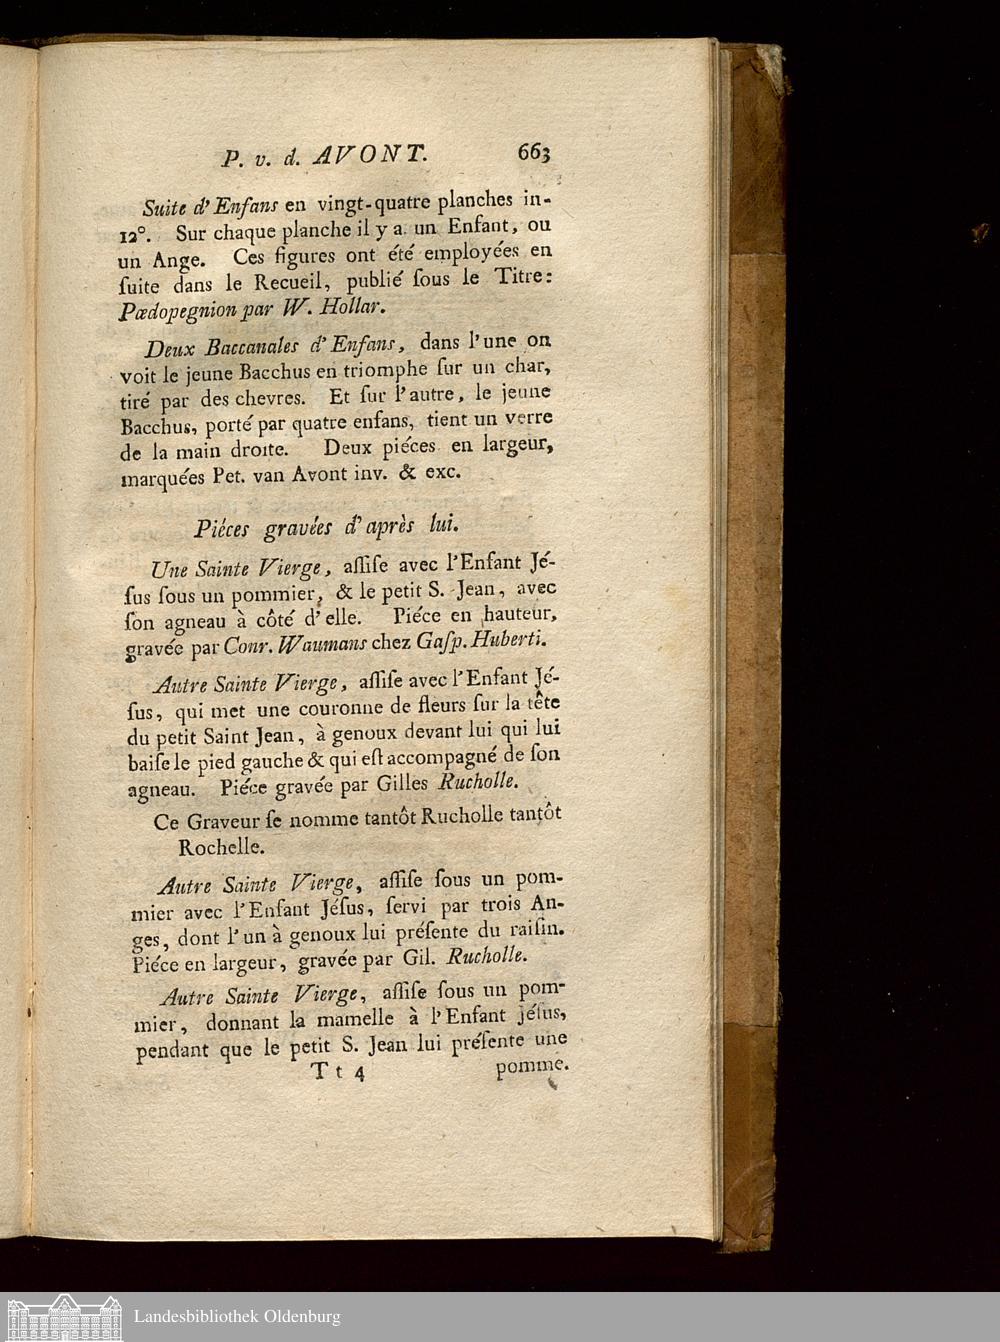 P. v. d. AVONT. 663
Suite d'Enfans en vingt-quatre planches in-
12°. Sur chaque planche il y a un Enfant, ou
un Ange. Ces figures ont été employées en
ſuite dans le Recueil, publié ſous le Titre:
Pœdopegnion par W. Hollar.
Deux Baccanales d'Enfans, dans l'une on
voit le jeune Bacchus en triomphe ſur un char,
tiré par des chevres. Et ſur l'autre, le jeune
Bacchus, porté par quatre enfans, tient un verre
de la main droite. Deux piéces en largeur,
marquées Pet. van Avont inv. & exc.
Piéces gravées d'après lui.
Une Sainte Vierge, aſſiſe avec l'Enfant Jé-
ſus ſous un pommier, & le petit S. Jean, avec
ſon agneau à côté d'elle. Piéce en hauteur,
gravée par Conr. Waumans chez Gaſp. Huberti.
Autre Sainte Vierge, aſſiſe avec l'Enfant Jé-
ſus, qui met une couronne de fleurs ſur la tête
du petit Saint Jean, à genoux devant lui qui lui
baiſe le pied gauche & qui eſt accompagné de ſon
agneau. Piéce gravée par Gilles Rucholle.
Ce Graveur ſe nomme tantôt Rucholle tantôt
Rochelle.
Autre Sainte Vierge, aſſiſe ſous un pom-
mier avec l'Enfant Jéſus, ſervi par trois An-
ges, dont l'un à genoux lui préſente du raiſin.
Piéce en largeur, gravée par Gil. Rucholle.
Autre Sainte Vierge, aſſiſe ſous un pom-
mier, donnant la mamelle à l'Enfant Jéſus,
pendant que le petit S. Jean lui préſente une
T t 4 pomme.
Landesbibliothek Oldenburg